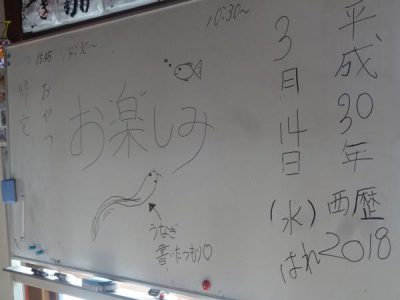 平成30年 西歴2018
3月14日(水)はれ
10:30～
お楽しみ
うなぎ
書いたつもり♡
14:30～
おやつ
15:45
帰宅